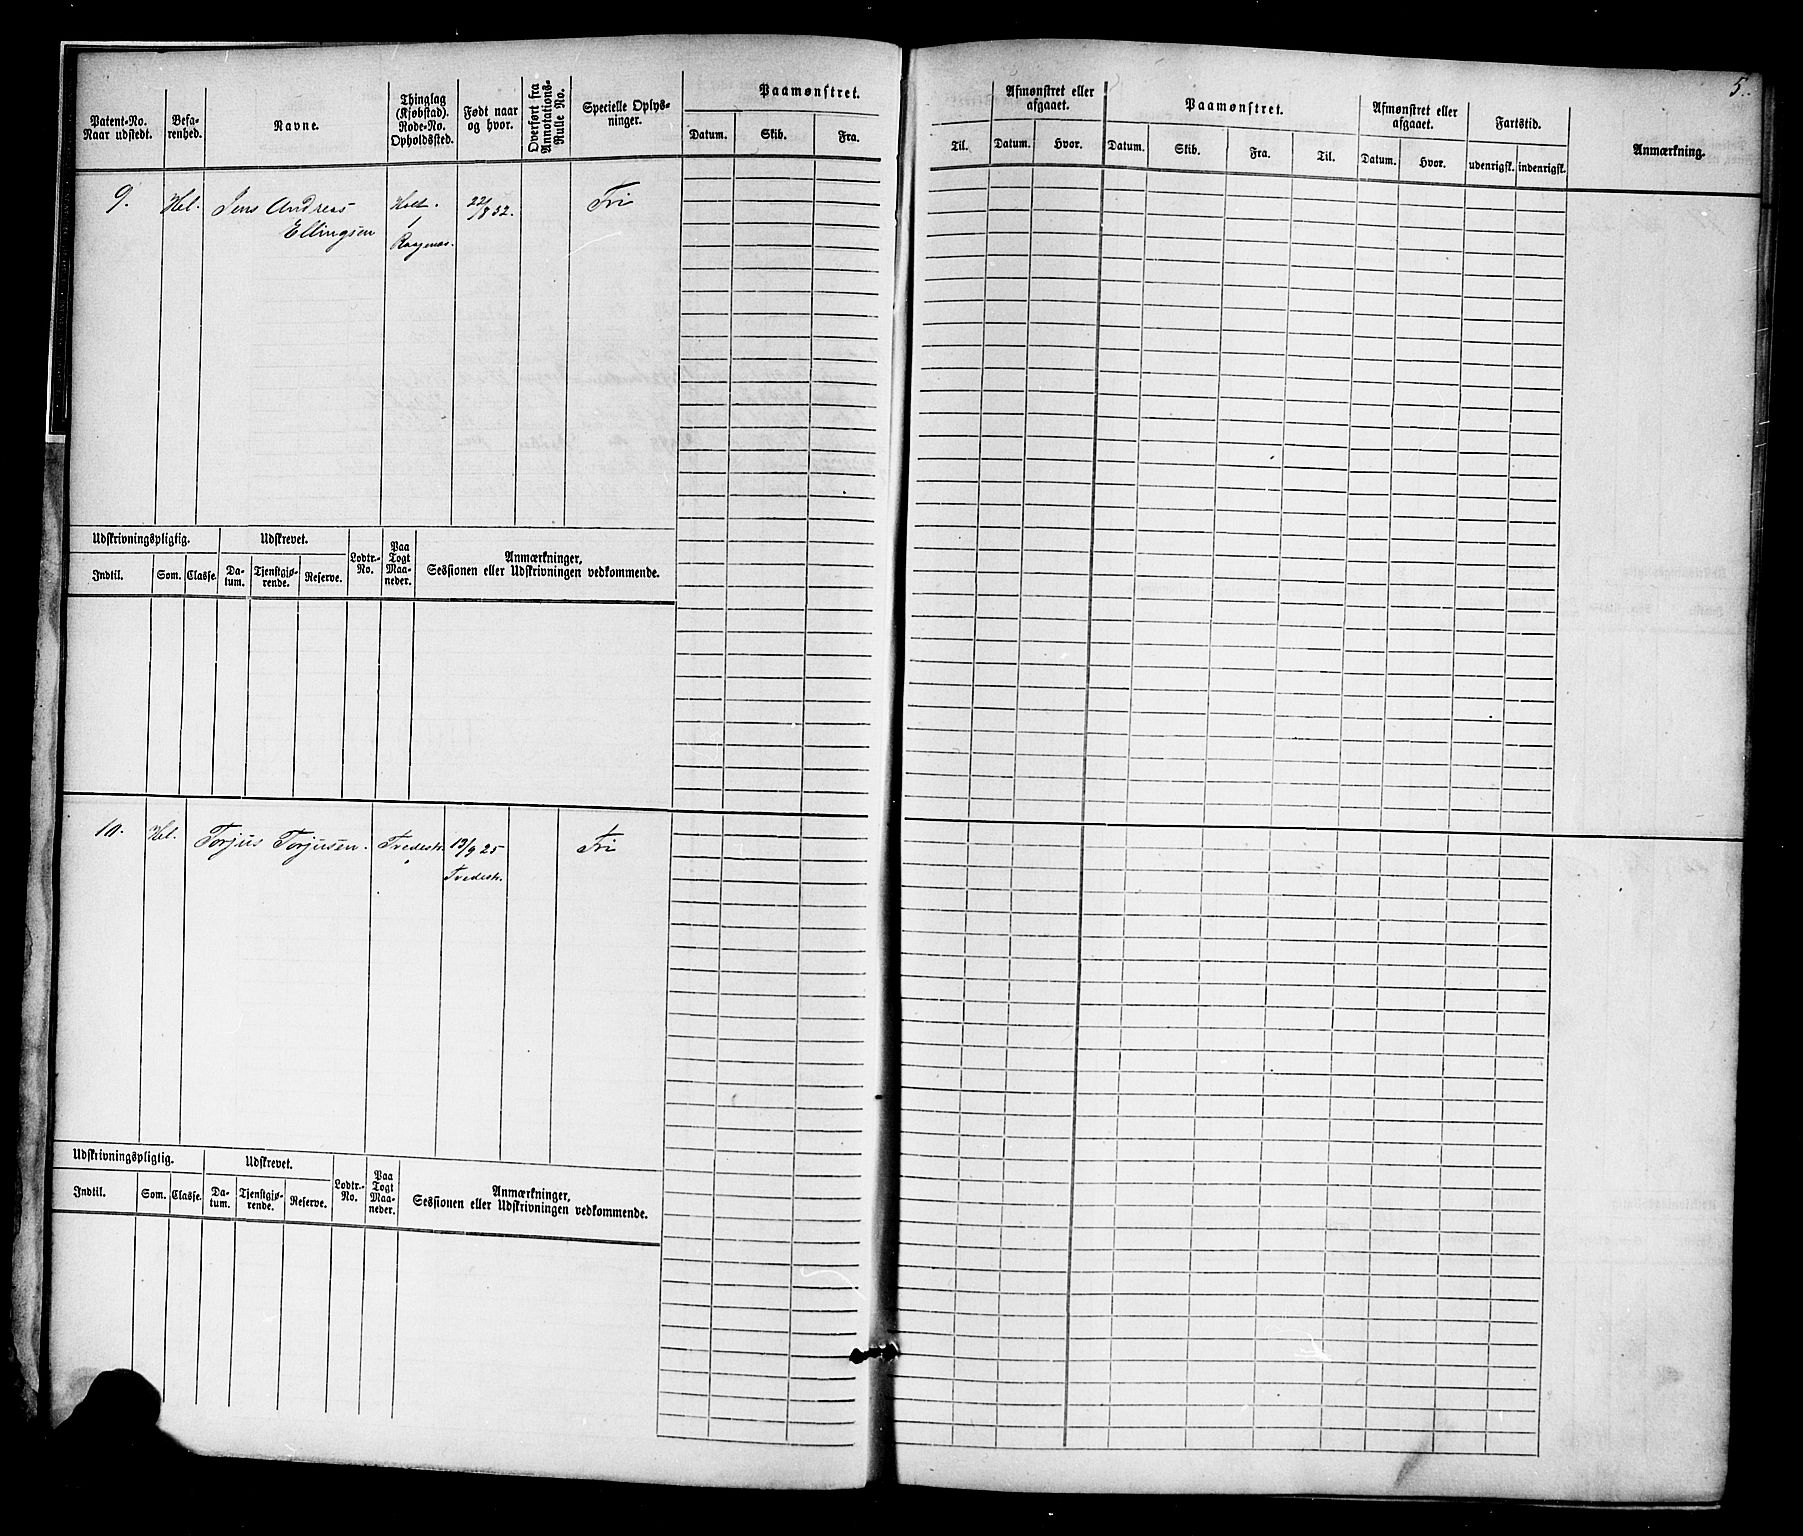 5.
Patent-No. Naar udstedt.
Befa-renhed.
Navne.
Thinglag (Kjøbstad). Rode-No. Opholdssted.
Født naar og hvor.
Overført fra Annotations-Rulle No.
Specielle Oplys-ninger.
Paamønstret.
Datum. Skib. Fra.
Til.
Afmønstret eller afgaaet.
Datum. Hvor.
Paamønstret.
Datum. Skib. Fra. Til.
Afmønstret eller afgaaet.
Datum. Hvor.
Fartstid.
udenrigsk. indenrigsk.
Anmærkning.
9. Hel. Jens Andreas Holt. 22/8 32. Fri
Ellingsen
Udskrivningspligtig. Udskrevet. Lodtr.-No. Paa Togt Maa-neder. Anmærkninger,
Sessionen eller Udskrivningen vedkommende.
Indtil. Som. Classe. Da-tum. Tjenstgjø-rende. Reserve.
10. Hel. Torjus Torjusen. Tvedestr. 13/9 25 Fri
Tvedestr.
Udskrivningspligtig. Udskrevet. Lodtr.-No. Paa Togt Maa-neder. Anmærkninger,
Sessionen eller Udskrivningen vedkommende.
Indtil. Som. Classe. Da-tum. Tjenstgjø-rende. Reserve.